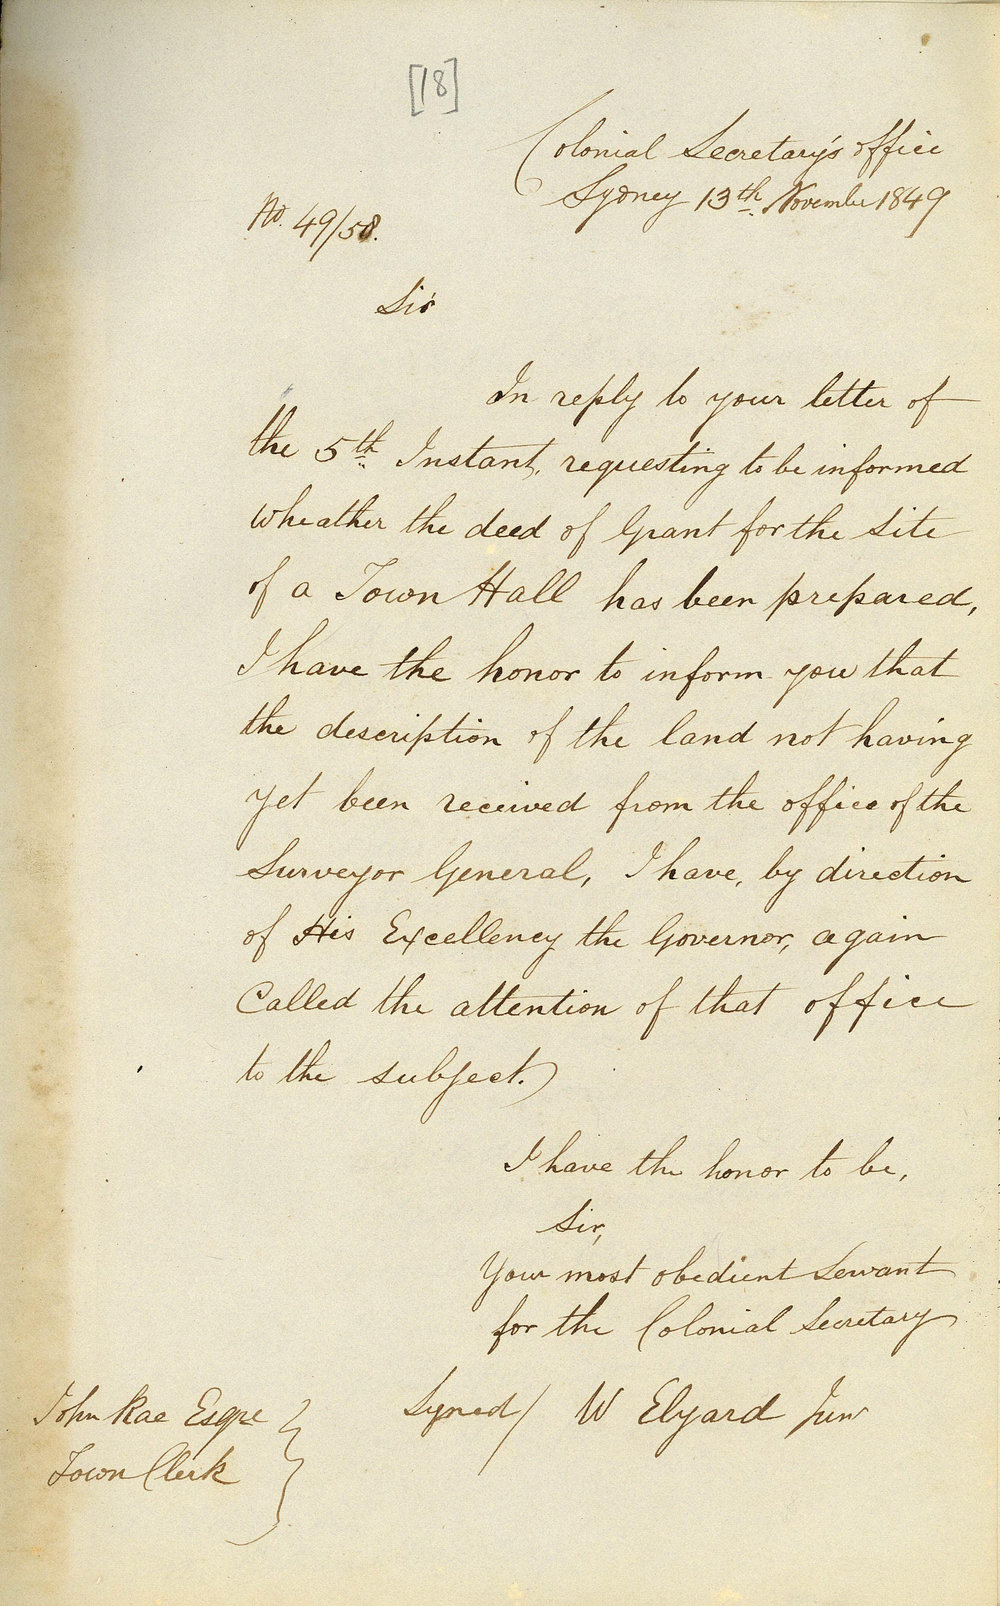 [18]
Colonial Secretary's office
Sydney 13th November 1849
No. 49/58.
Sir
In reply to your letter of
the 5th Instant, requesting to be informed
wheather the deed of Grant for the Site
of a Town Hall has been prepared,
I have the honor to inform you that
the description of the land not having
yet been received from the office of the
Surveyor General, I have, by direction
of His Excellency the Governor, again
Called the attention of that office
to the subject.)
I have the honor to be,
Sir,
Your most obedient Servant
for the Colonial Secretary
Signed/ W Elyard Junr
John Rae Esqre
Town Clerk